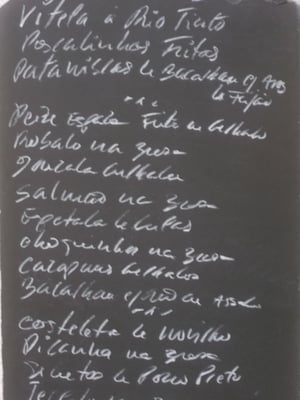 Vitela à Rio Tinto
Pescadinhas Fritas
Pataniscas de Bacalhau c/ Arroz
de Feijão
Peixe Espada Frito ou Grelhado
Robalo na Brasa
Grelhada
Salmão na Brasa
Espetada de Lulas
Choquinhos na Brasa
Carapaus Grelhados
Bacalhau Assado
Costeleta de Novilho
Picanha na Brasa
de Porco Preto